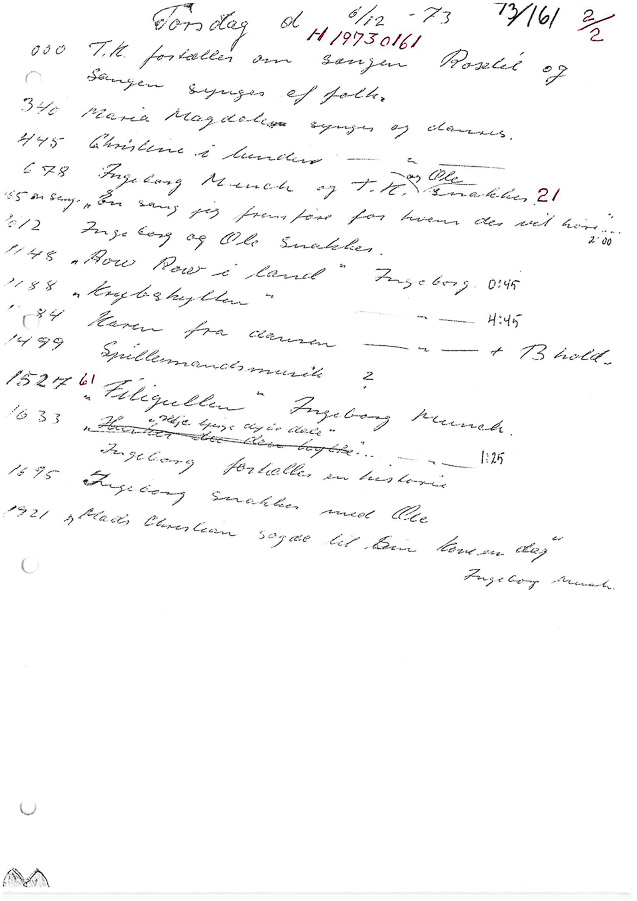 Torsdag d 6/12 - 73 73/161 2/2
H 19730161
000 T.K. fortæller om sangen Roselil og
Sangen synges af folk.
340 Maria Magdalene synges og danses.
445 Christine i lunden — " —
678 Ingeborg Munch og T.K. og Ole snakker. 21
"En sang jeg fremføre for hvem der vil høre"...
2:00
1012 Ingeborg og Ole snakker.
1148 "Row Row i land" Ingeborg. 0:45
1188 "Krybskytten" — " — 4:45
84 Karen fra dansen — " — + B hold.
1499 Spillemandsmusik ?
1527 61 "Filigullen" Ingeborg Munch.
1633 ... — " — 1:25
Ingeborg fortæller en historie
1695 Ingeborg snakker med Ole
1921 "Mads Christian sagde til sin kone en dag"
Ingeborg Munch.